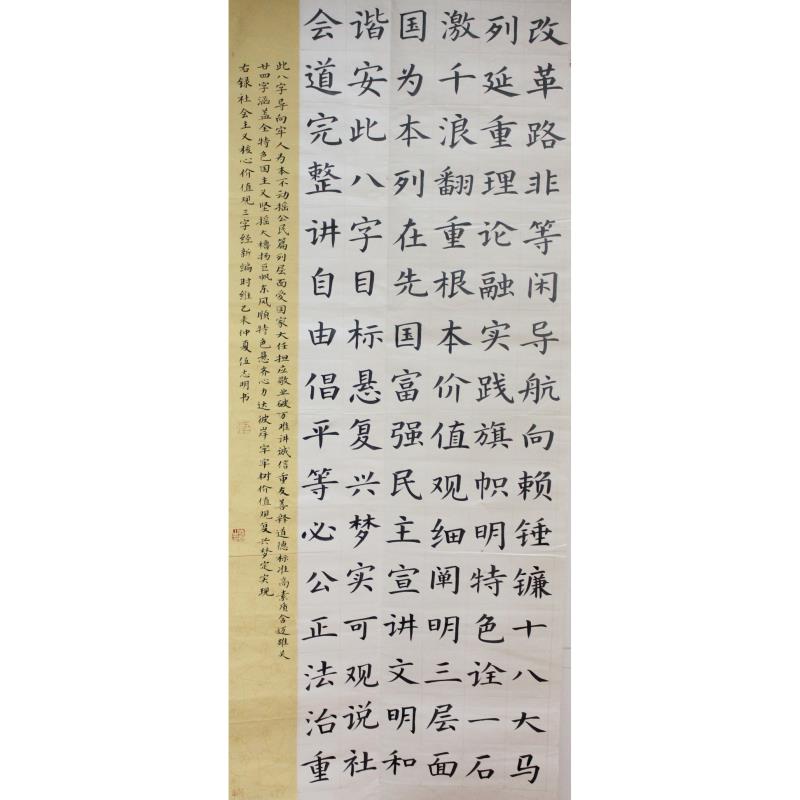 改革路非等闲导航向赖锤镰十八大马
列延重理论融实践旗帜明特色诠一石
激千浪翻重根本价值观细阐明三层面
国为本列在先国富强民主宣讲文明和
谐安此八字目标悬复兴梦实可观说社
会道完整讲自由倡平等必公正法治重
此八字导向牢人为本不动摇公民篇列层面爱国家大任担应敬业破万难讲诚信重友善释道德标准高素质含道雖夭
廿四字涵盖全特色国主义坚摇大橹扬巨帆东风顺特色悬齐心力达彼岸牢牢树价值观复兴梦定实现
右录社会主义核心价值观三字经新编时维乙未仲夏伍志明书